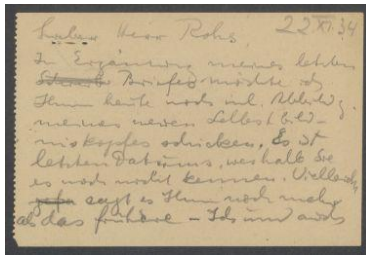 22 XI. 34
Lieber Herr Rohs,
In Ergänzung meines letzten
Briefes möchte ich
Ihnen heute noch inl. Abbildg.
meines neuen Selbstbild-
niskopfes schicken. Es ist
letzten Datums, weshalb Sie
es noch nicht kennen. Vielleicht
sagt es Ihnen noch mehr
als das frühere – Ich und auch